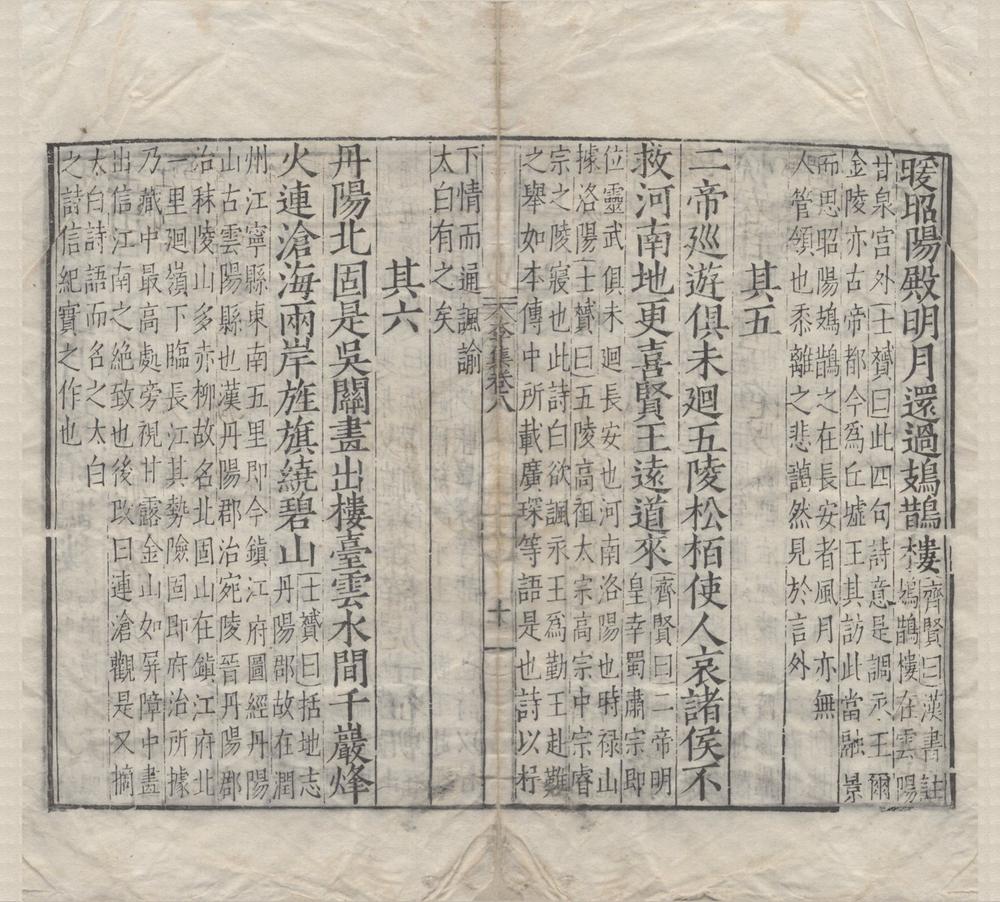 暖昭陽殿明月還過鳷鵲樓齊賢曰漢書註
鳷鵲樓在雲陽
甘泉宫外士贇曰此四句詩意是調永王爾
金陵亦古帝都今爲丘墟王其訪此當融景
而思昭陽鳷鵲之在長安者風月亦無
人管領也黍離之悲藹然見於言外
其五
二帝廵遊俱未廻五陵松栢使人哀諸侯不
救河南地更喜賢王遠道來齊賢曰二帝明
皇幸蜀肅宗即
位靈武俱未廻長安也河南洛陽也時禄山
據洛陽士贇曰五陵高祖太宗高宗中宗睿
宗之陵寢也此詩白欲諷永王爲勤王赴難
之舉如本傳中所載廣琛等語是也詩以杼
下情而通諷諭
太白有之矣
集卷八
十
其六
丹陽北固是吳關畫出樓臺雲水間千巖烽
火連滄海兩岸旌旗繞碧山士贇曰括地志
丹陽郡故在潤
州江寧縣東南五里即今鎮江府圖經丹陽
山古雲陽縣也漢丹陽郡治宛陵晉丹陽郡
治秣陵山多赤柳故名北固山在鎮江府北
一里廻嶺下臨長江其勢險固即府治所據
乃藏中最高處旁視甘露金山如屏障中畫
出信江南之絶致也後改曰連滄觀是又摘
太白詩語而名之太白
之詩信紀實之作也